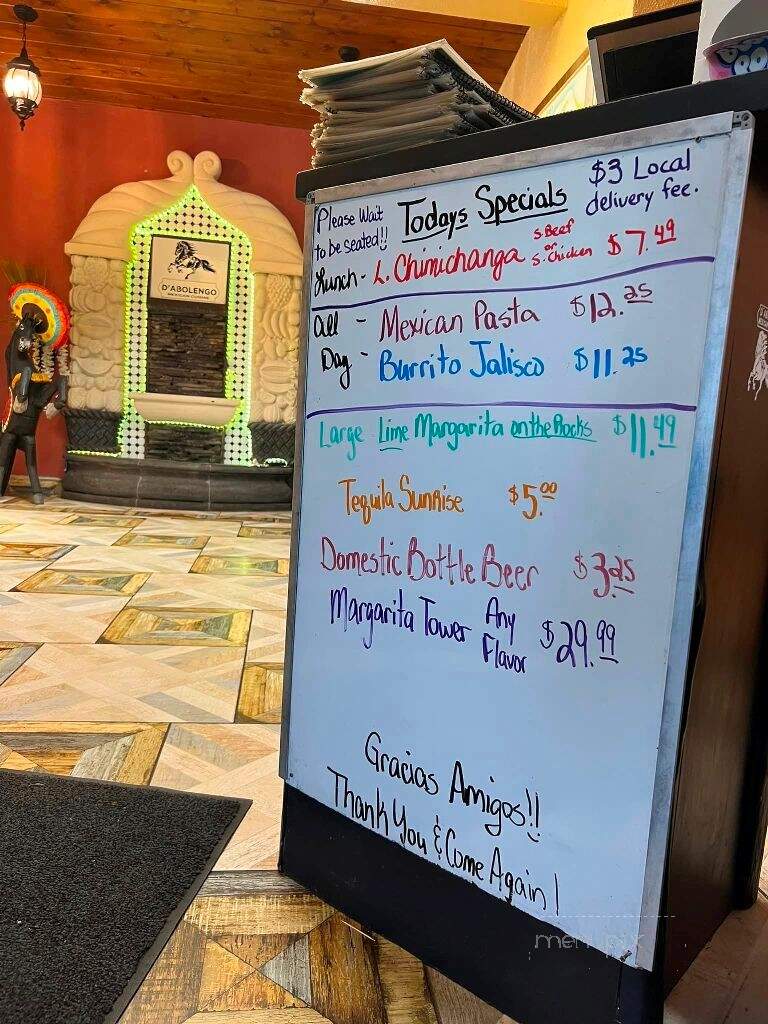 Please Wait
to be seated!!
Todays Specials
$3 Local
delivery fee.
Lunch - L. Chimichanga S. Beef or S. Chicken $7.49
All - Mexican Pasta $12.25
Day - Burrito Jalisco $11.25
Large Lime Margarita on the Rocks $11.49
Tequila Sunrise $5.00
Domestic Bottle Beer $3.25
Margarita Tower Any Flavor $29.99
Gracias Amigos!!
Thank You & Come Again!
D'ABOLENGO
MEXICAN CUISINE
menupix